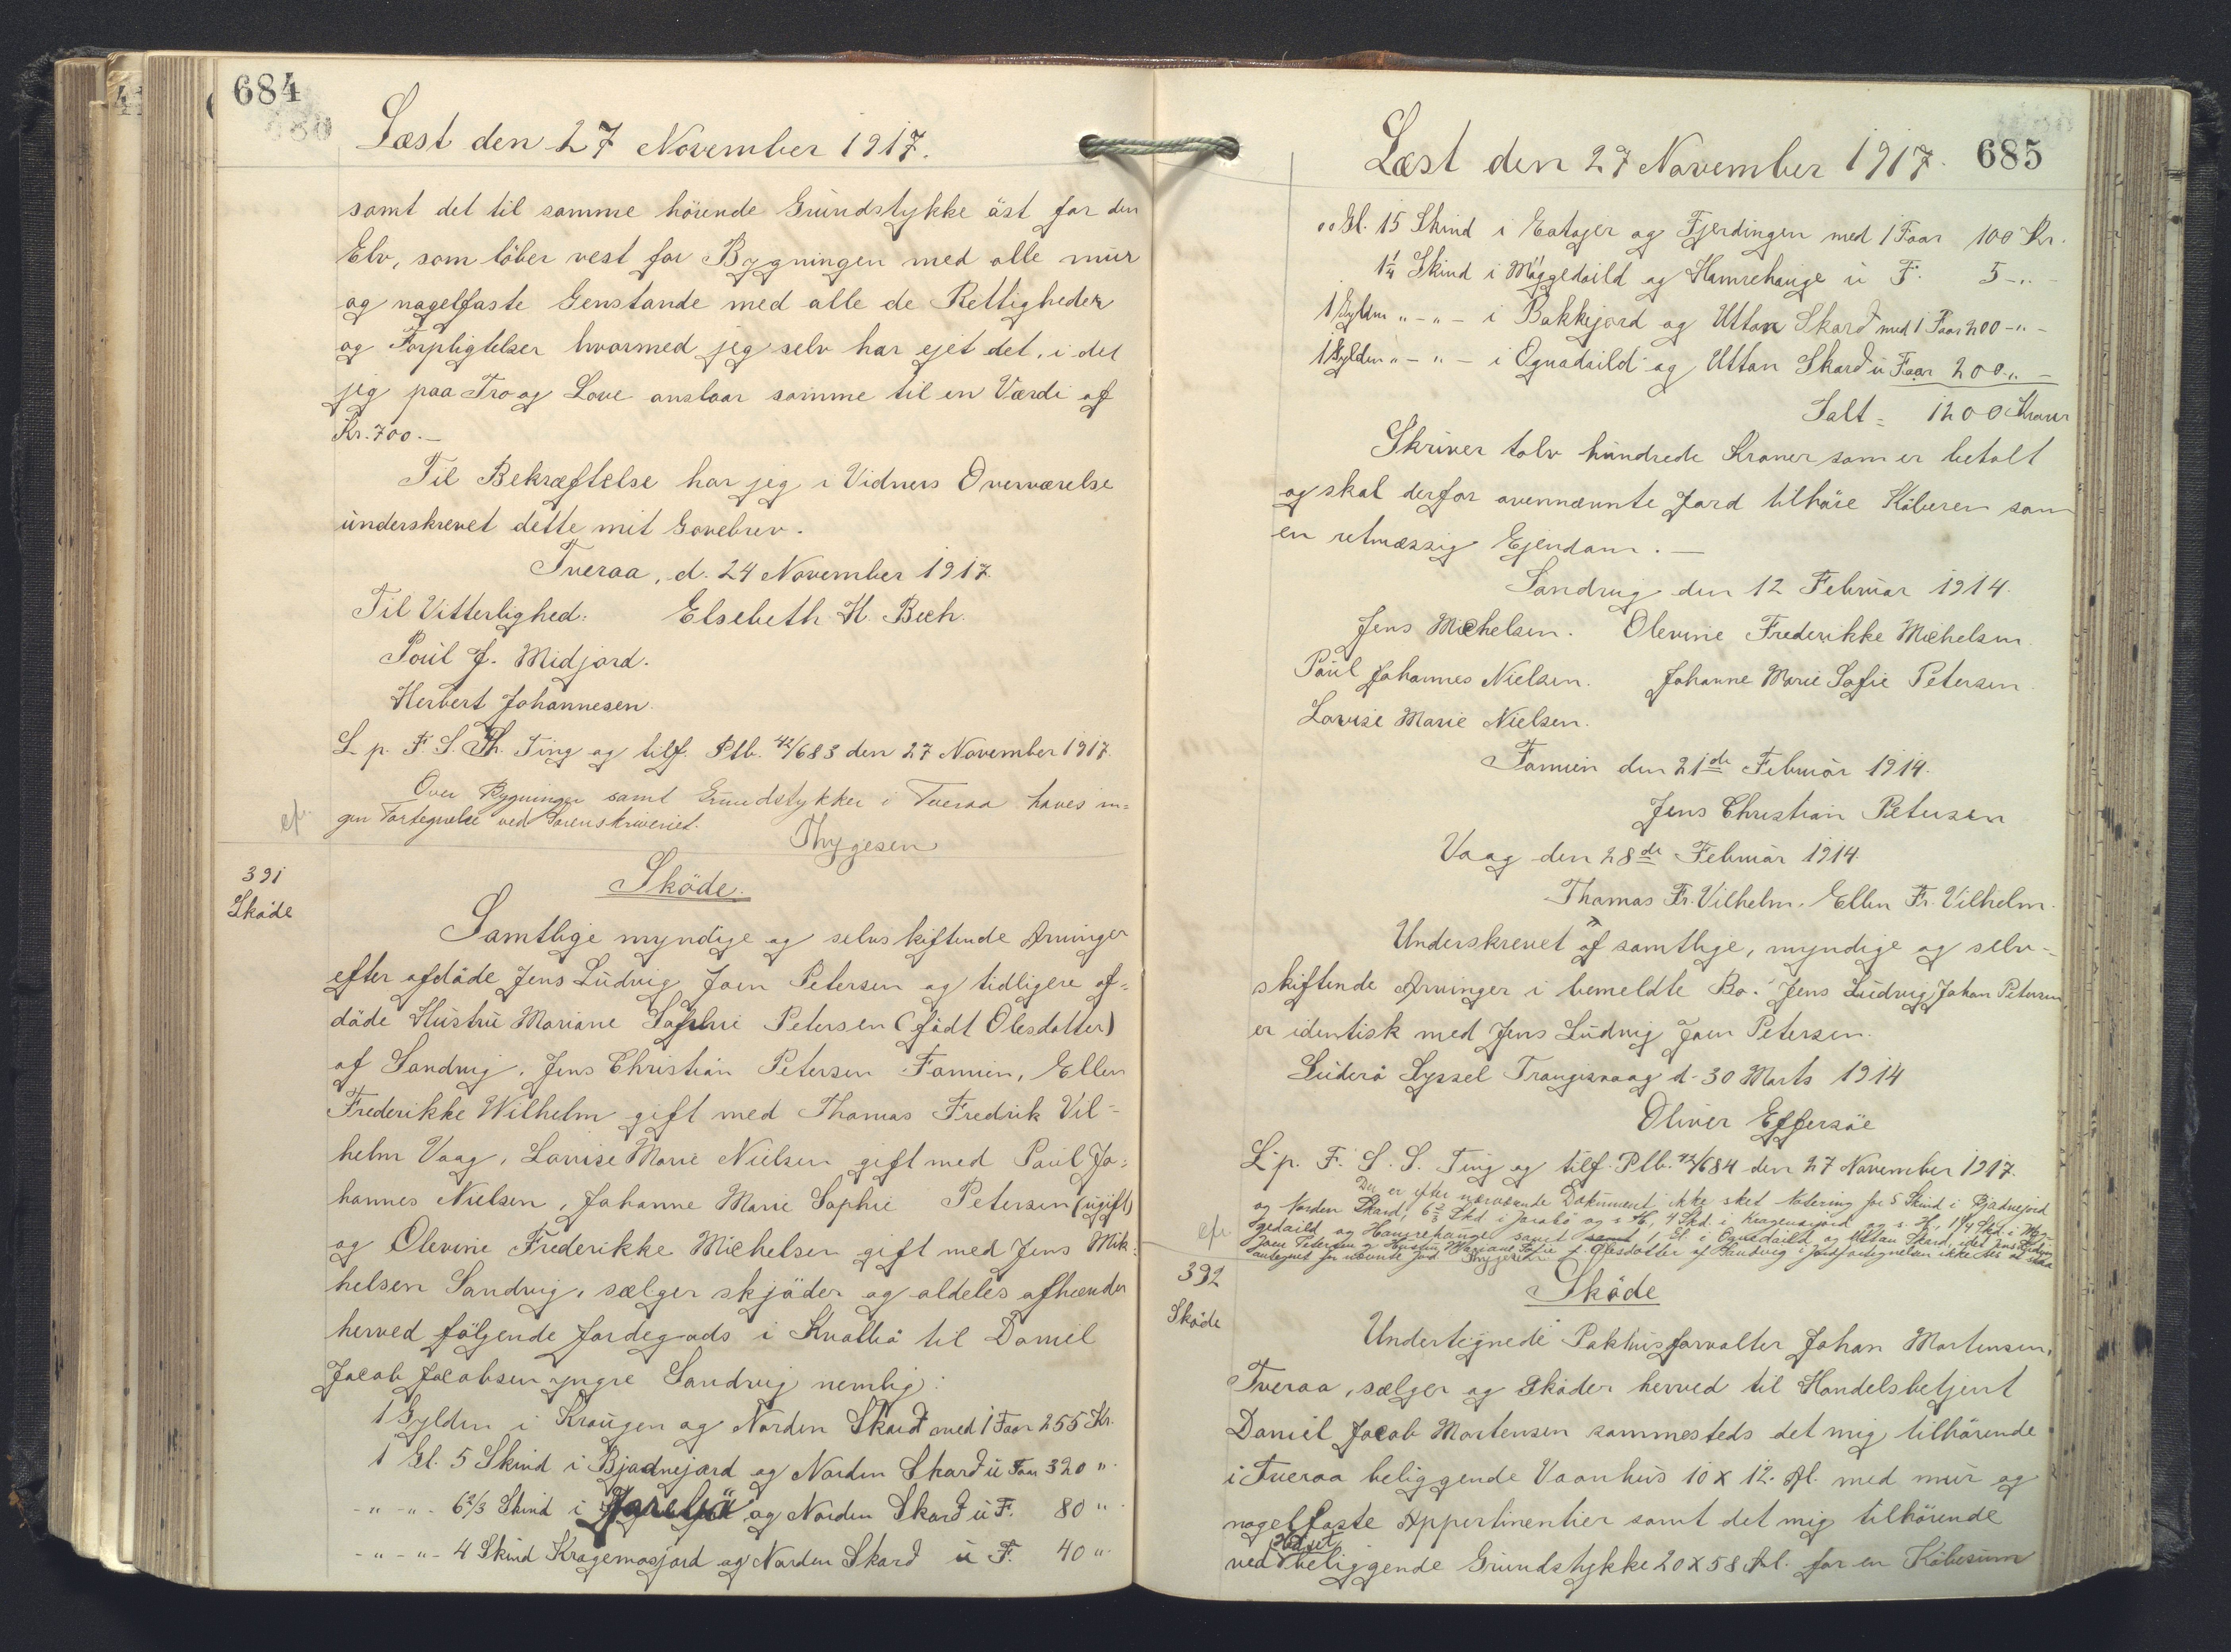 684
Læst den 27 November 1917.
samt det til samme hörende Grundstykke öst for den
Elv, som löber vest for Bygningen med alle mur
og nagelfaste Genstande med alle de Rettigheder
og Forpligtelser hvormed jeg selv har ejet det, i det
jeg paa Tro og Love anslaar samme til en Værdi af
Kr. 700.—
Til Bekræftelse har jeg i Vidners Overværelse
underskrevet dette mit Gavebrev.
Tveraa, d. 24 November 1917.
Til Vitterlighed: Elsebeth K. Bech.
Poul J. Midjord.
Herbert Johannesen.
L. p. F. S. Th. Ting og tilf. Ptb. 42/683 den 27 November 1917.
Over Bygninger samt Grundstykker i Tveraa haves in=
gen Fortegnelse ved Sorenskriveriet.
Thygesen
391
Sköde
Sköde.
Samtlige myndige og selvskiftende Arvinger
efter afdöde Jens Ludvig Joen Petersen og tidligere af=
döde Hustru Mariane Sophie Petersen (född Olesdatter)
af Sandvig, Jens Christian Petersen Famien, Ellen
Frederikke Wilhelm gift med Thomas Fredrik Vil=
helm Vaag, Lovise Marie Nielsen gift med Paul Jo=
hannes Nielsen, Johanne Marie Sophie Petersen (ugift)
og Olevine Frederikke Michelsen gift med Jens Mik=
helsen Sandvig, sælger skjöder og aldeles afhænder
herved følgende Jordegods i Kvalbö til Daniel
Jacob Jacobsen yngre Sandvig nemlig:
1 Gylden i Kraugen og Norden Skard med 1 Faar 255 Kr.
1 Gl. 5 Skind i Bjadnejord og Norden Skard u Faar 320 "
-"-"- 6 2/3 Skind i Jarebö og Norden Skard u F. 80 "
-"-"- 4 Skind Kragemosjord og Norden Skard u F. 40 "
685
Læst den 27 November 1917.
"" Gl. 15 Skind i Eatajer og Fjerdingen med 1 Faar 100 Kr.
1¼ Skind i Möggedaild og Hamrehauge u F. 5 -"-
1 Gylden "-"- i Bakkejord og Uttan Skard med 1 Faar 200 -"-
1 Gylden "-"- i Ognadaild og Uttan Skard u Faar 200 "-
Ialt = 1200 Kroner
Skriver tolv hundrede Kroner som er betalt
og skal derfor ovennævnte Jord tilhöre Köberen som
en retmæssig Ejendom.—
Sandvig den 12 Februar 1914.
Jens Michelsen. Olevine Frederikke Michelsen.
Paul Johannes Nielsen. Johanne Marie Sofie Petersen.
Lovise Marie Nielsen.
Famien den 21de Februar 1914.
Jens Christian Petersen
Vaag den 28de Februar 1914.
Thomas Fr. Vilhelm. Ellen Fr. Vilhelm.
Underskrevet af samtlige, myndige og selv-
skiftende Arvinger i bemeldte Bo. Jens Ludvig Johan Petersen
er identisk med Jens Ludvig Joen Petersen.
Suderö Syssel Trangisvaag d. 30 Marts 1914
Oliver Effersöe
L. p. F. S. S. Ting og tilf. Ptb. 42/684 den 27 November 1917.
Der er efter nærværende Dokument ikke sket Notering for 5 Skind i Bjadnejord
og Norden Skard, 6 2/3 Skd i Jarabö og s. St., 4 Skd. i Kragemosjord og s. St., 1 1/4 Skd. i Mög=
gedaild og Hamrehange samt 1 Gl. i Ognadaild og Uttan Skard, idet Jens Ludvig
Joen Petersen og Hustru Mariane Sofie f. Olesdatter af Sandvig i Jordfortegnelsen ikke ses at staa
antegnet for nævnte Jord Thygesen
392
Sköde
Sköde
Undertegnede Pakhusforvalter Johan Mortensen,
Tveraa, sælger og sköder herved til Handelsbetjent
Daniel Jacob Mortensen sammesteds det mig tilhörende
i Tveraa beliggende Vaanhus 10 x 12. Al. med mur og
nagelfaste Appertinentier samt det mig tilhörende
ved Huset beliggende Grundstykke 20 x 58 Al. for en Köbesum